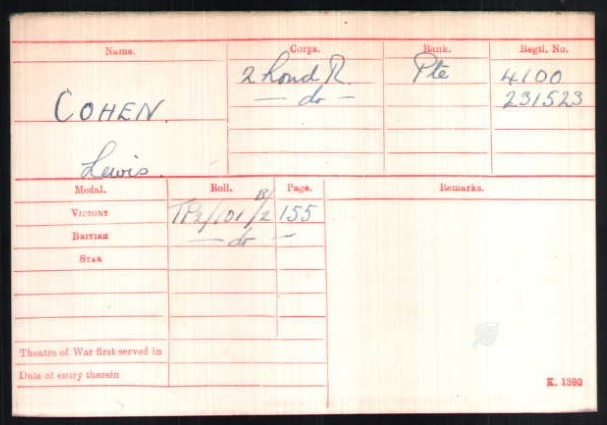 Name. Corps. Rank. Regtl. No.
2 Lond R. Pte 4100
— do — 231523
COHEN.
Lewis.
Medal. Roll. Page. Remarks.
VICTORY TP2/101 B/2 155
BRITISH — do —
STAR
Theatre of War first served in
Date of entry therein
K. 1380